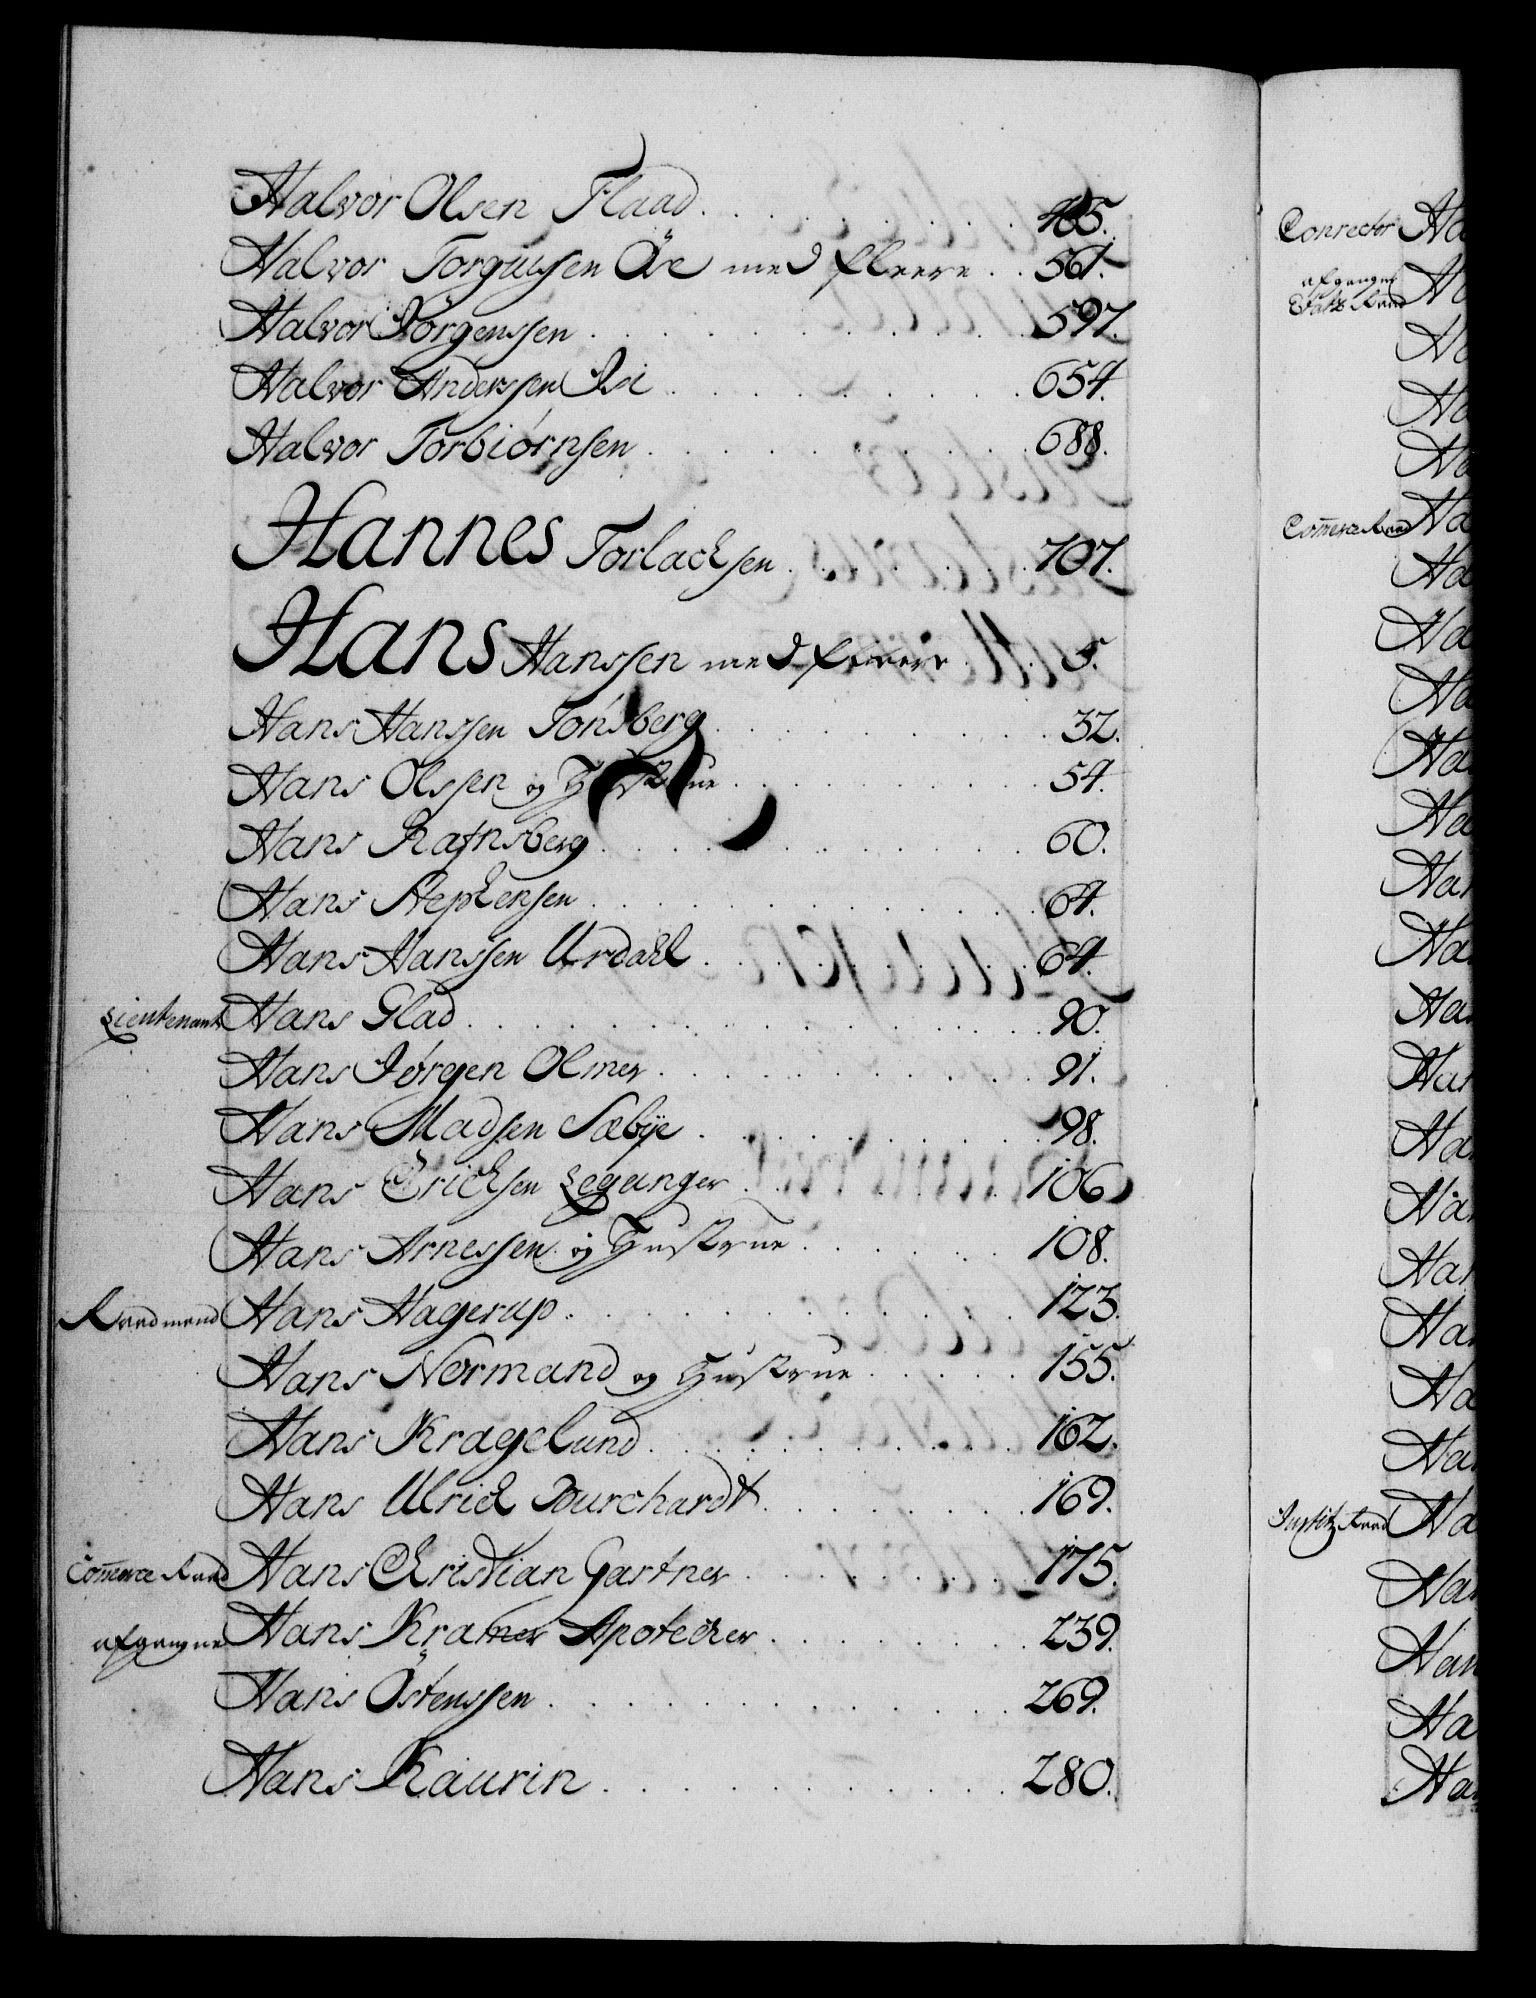 Halvor Olsen Flaad . . . . . . . . 485.
Halvor Torgiussen Öve med fleere . . 561.
Halvor Jörgenssen . . . . . . . . 597.
Halvor Anderssen Lie . . . . . . . . 654.
Halvor Torbiörnsen . . . . . . . . 688.
Hannes Torlachsen . . . . . . . . 707.
Hans Hanssen med fleere . . . 5.
Hans Hanssen Tönsberg . . . . . . . . 32.
Hans Olssen og Hustrue . . . . . . . . 54.
Hans Rafnsberg . . . . . . . . 60.
Hans Stephensen . . . . . . . . 64.
Hans Hanssen Urdahl . . . . . . . . 64.
Lieutenant Hans Glad . . . . . . . . 90.
Hans Jørgen Olmer . . . . . . . . 91.
Hans Madsen Sæbÿe . . . . . . . . 98.
Hans Erichsen Leganger . . . . . . . . 106
Hans Arnessen og Hustrue . . . . . . 108.
Raadmand Hans Hagerup . . . . . . . . 123.
Hans Normand og Hustrue . . . . . 155.
Hans Kragelund . . . . . . . . 162.
Hans Ulrich Burchardt . . . . . . . . 169.
Com̄erce Raad Hans Christian Gartner . . . . . . . . 175.
afgangne Hans Kramer Apotecher . . . . . . . . 239.
Hans Östenssen . . . . . . . . 269.
Hans Kaurin . . . . . . . . 280.
Conrector Ha
afgangne
Etats Raad Ha
Ha
Ha
Ha
Com̄erce Raad Ha
Ha
Ha
Ha
Ha
Ha
Han
Ha
Han
Han
Ha
Han
Han
Han
Ha
Han
Justitz Raad Ha
Han
Han
Ha
Han